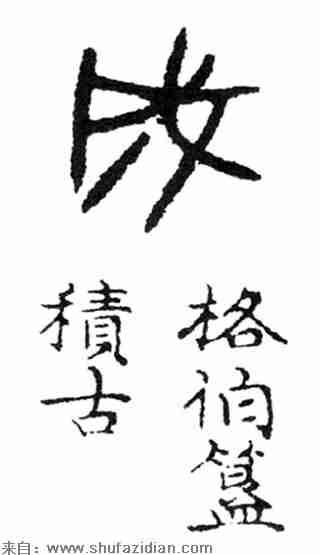 格伯簋
積古
来自：www.shufazidian.com